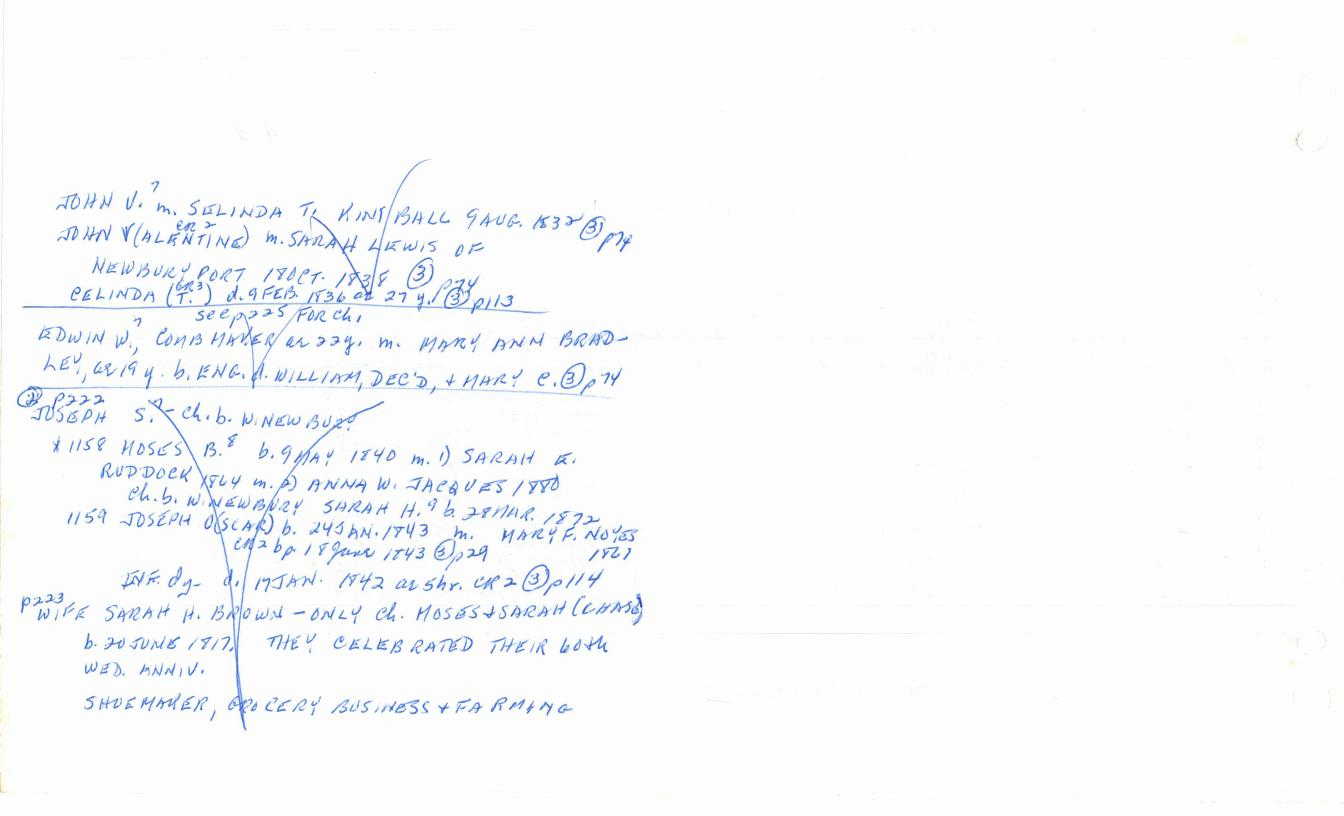 JOHN V.⁷ m. SELINDA T. KIMBALL 9 AUG. 1832 ③ p74
CR 2
JOHN V(ALENTINE) m. SARAH LEWIS OF
NEWBURYPORT 18 OCT. 1838 ③ p74
GR3
CELINDA (T.) d. 9 FEB. 1836 ae 27 y. ③ p113
see p225 FOR ch.
EDWIN W.⁷, COMB MAKER ae 22y. m. MARY ANN BRAD-
LEY, ae 19 y. b. ENG. d. WILLIAM, DEC'D, + MARY C. ③ p74
② p222
JOSEPH S.⁷ - ch. b. W. NEWBURY
* 1158 MOSES B.⁸ b. 9 MAY 1840 m. 1) SARAH E.
RUDDOCK 1864 m. 2) ANNA W. JACQUES 1880
ch. b. W. NEWBURY SARAH H.⁹ b. 28 MAR. 1872
1159 JOSEPH O(SCAR) b. 24 JAN. 1843 m. MARY F. NOYES
CR2 bp. 18 June 1843 ③ p29 1861
INF. dy- d. 17 JAN. 1842 ae 5hr. CR 2 ③ p114
p223
WIFE SARAH H. BROWN - ONLY ch. MOSES + SARAH (CHASE)
b. 20 JUNE 1817. THEY CELEBRATED THEIR 60th
WED. ANNIV.
SHOEMAKER, GROCERY BUSINESS + FARMING